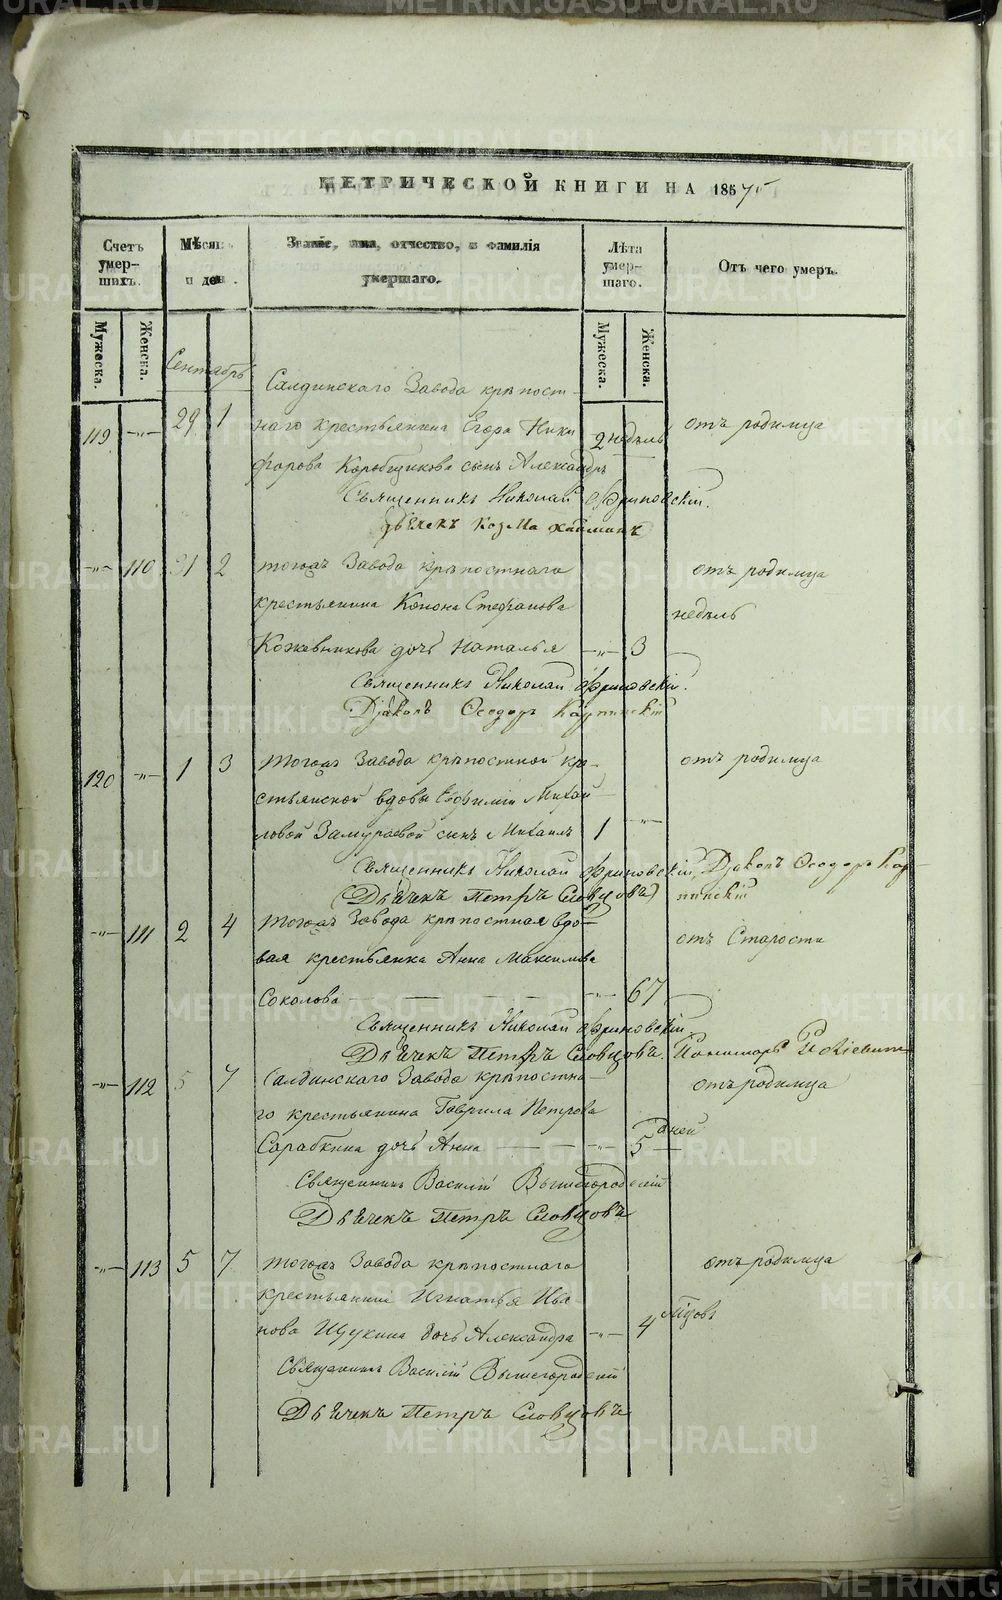 МЕТРИЧЕСКОЙ КНИГИ НА 185
Счетъ умер-шихъ.
Мѣсяцъ и ден.
Званіе, имя, отчество, и фамилія умершаго.
Лѣта умер-шаго.
Отъ чего умеръ.
Мужеска. Женска. Мужеска. Женска.
Сентабрь
Салдинскаго Завода крѣпост-
119 —„— 29 1 наго крестьянина Егора Ники 2 недѣль отъ родимца
форова Коробещикова сынъ Александръ
Священникъ Николай Фриновскій.
дьячекъ Козма
—„— 110 31 2 тогожъ Завода крѣпостнаго отъ родимца
крестьянина Конона Стефанова недѣль
Кожевникова дочь Наталья —„— 3
Священникъ Николай Фриновскій.
Діаконъ Феодоръ Карпинскій
120 —„— 1 3 тогожъ Завода крѣпостной кре- отъ родимца
стьянской вдовы Евфиміи Михай-
ловой Замураевой сынъ Михаилъ 1 —„—
Священникъ Николай Фриновскій, Діаконъ Феодоръ Кар-
(Дьячекъ Петръ Словцовъ) пинскій
—„— 111 2 4 тогожъ Завода крѣпостная вдо- отъ Старости
вая крестьянка Анна Максимова
Соколова —„— 67
Священникъ Николай Фриновскій
Дьячекъ Петръ Словцовъ. Пономарь
—„— 112 5 7 Салдинскаго Завода крѣпостна- отъ родимца
го крестьянина Гаврила Петрова
Сарабкина дочь Анна —„— 5 дней
Священникъ Василій Вышегородскій
Дьячекъ Петръ Словцовъ
—„— 113 5 7 тогожъ Завода крѣпостнаго отъ родимца
крестьянина Игнатья Ива-
нова Щукина дочь Александра —„— 4
Священникъ Василій Вышегородскій
Дьячекъ Петръ Словцовъ
METRIKI.GASO-URAL.RU